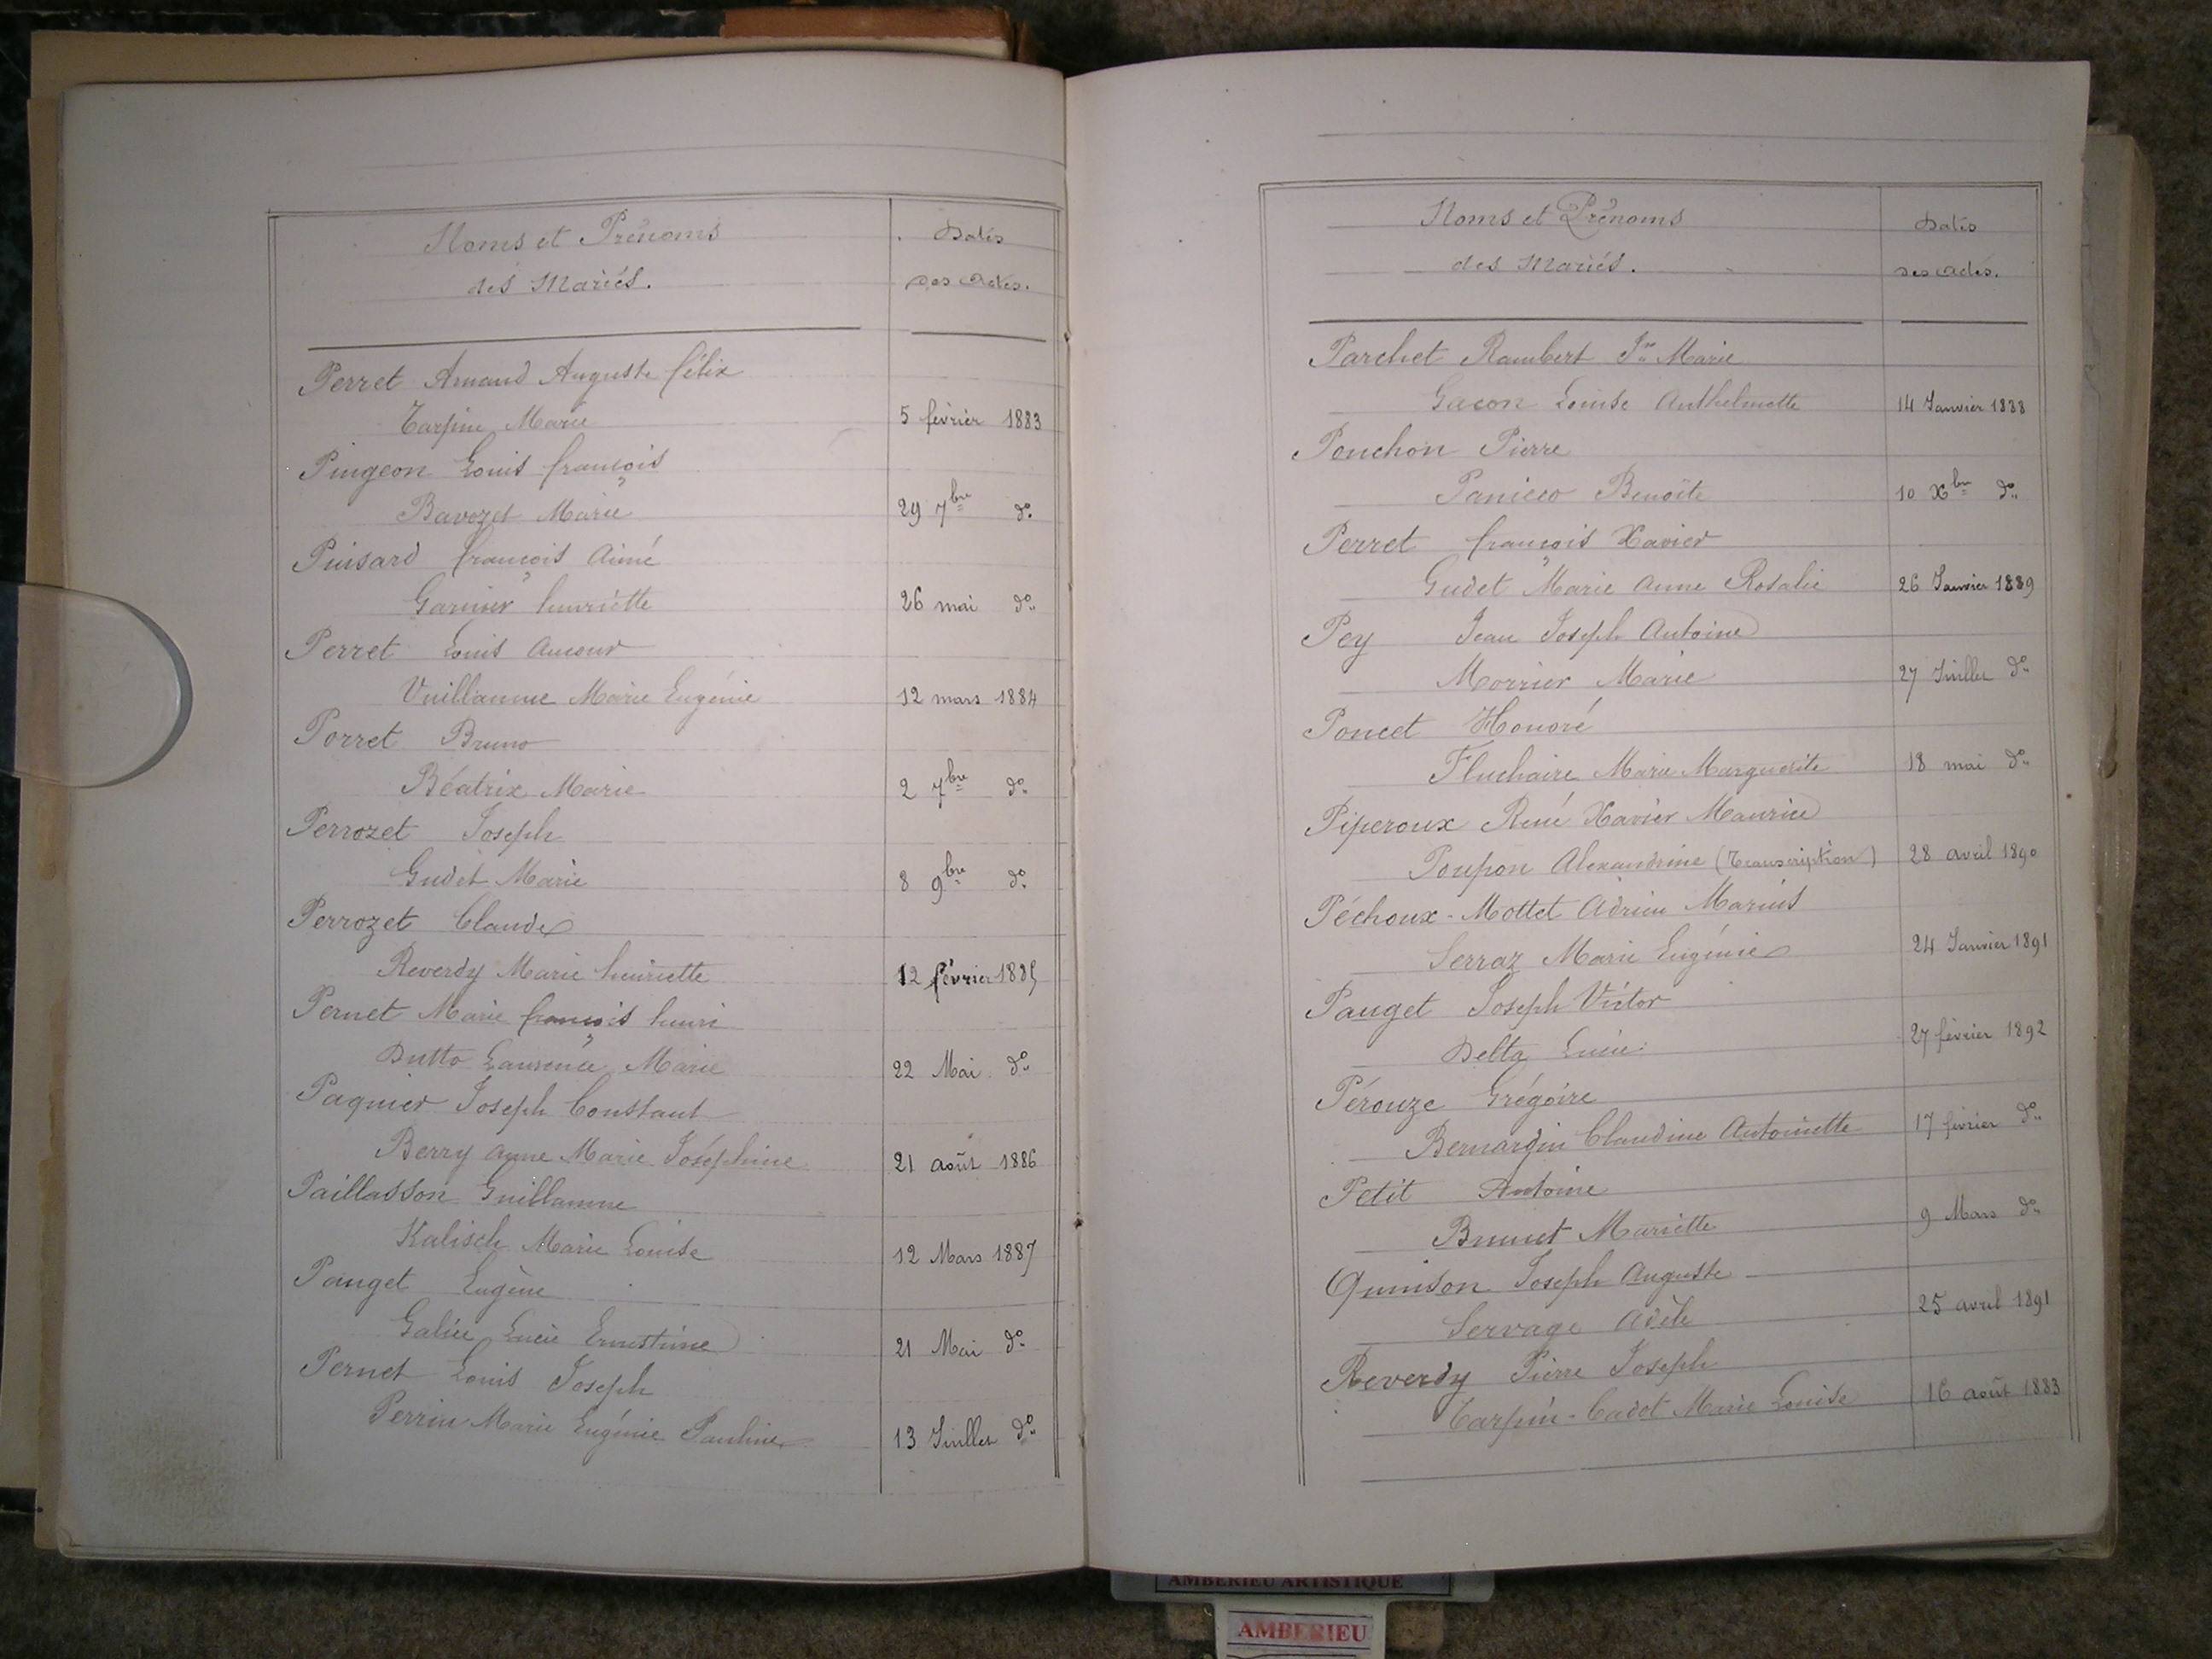 Noms et Prénoms
des Mariés.
Dates
des Actes.
Perret Armand Auguste félix
Tarpin Marie
5 février 1883
Pingeon Louis françois
Bavozet Marie
29 7bre do.
Puisard françois Aimé
Garnier henriette
26 mai do
Perret Louis
Vuillaume Marie Eugénie
12 mars 1884
Porret Bruno
Béatrix Marie
2 7bre do
Perrozet Joseph
Gudet Marie
8 9bre do
Perrozet Claude
Reverdy Marie henriette
12 février 1885
Pernet Marie françois henri
Dutto Laurence Marie
22 Mai do
Pagnier Joseph Constant
Berry Anne Marie Joséphine
21 août 1886
Paillasson Guillaume
Kalisch Marie Louise
12 Mars 1887
Pauget Eugène
Lucie Ernestine
21 Mai do
Pernet Louis Joseph
Perrin Marie Eugénie Pauline
13 Juillet do
Noms et Prénoms
des Mariés.
Dates
des actes.
Parchet Rambert Marie
Gacon Louise Anthelmette
14 Janvier 1888
Ponchon Pierre
Benoîte
10 Xbre do
Perret françois Xavier
Gudet Marie Anne Rosalie
26 Janvier 1889
Pey Jean Joseph Antoine
Morrier Marie
27 Juillet do
Poncet Honoré
Fluchaire Marie Marguerite
18 mai do
Piperoux René Xavier Maurice
Poupon Alexandrine (Transcription)
28 avril 1890
Péchoux-Mottet Adrien Marius
Serraz Marie Eugénie
24 Janvier 1891
Pauget Joseph Victor
Delta Lucie
27 février 1892
Pérouze Grégoire
Bernardin Claudine Antoinette
17 février do
Petit Antoine
Brunet Mariette
9 Mars do
Quinson Joseph Auguste
Servage Adèle
25 avril 1891
Reverdy Pierre Joseph
Tarpin-Cadot Marie Louise
16 août 1883
AMBERIEU ARTISTIQUE
AMBERIEU